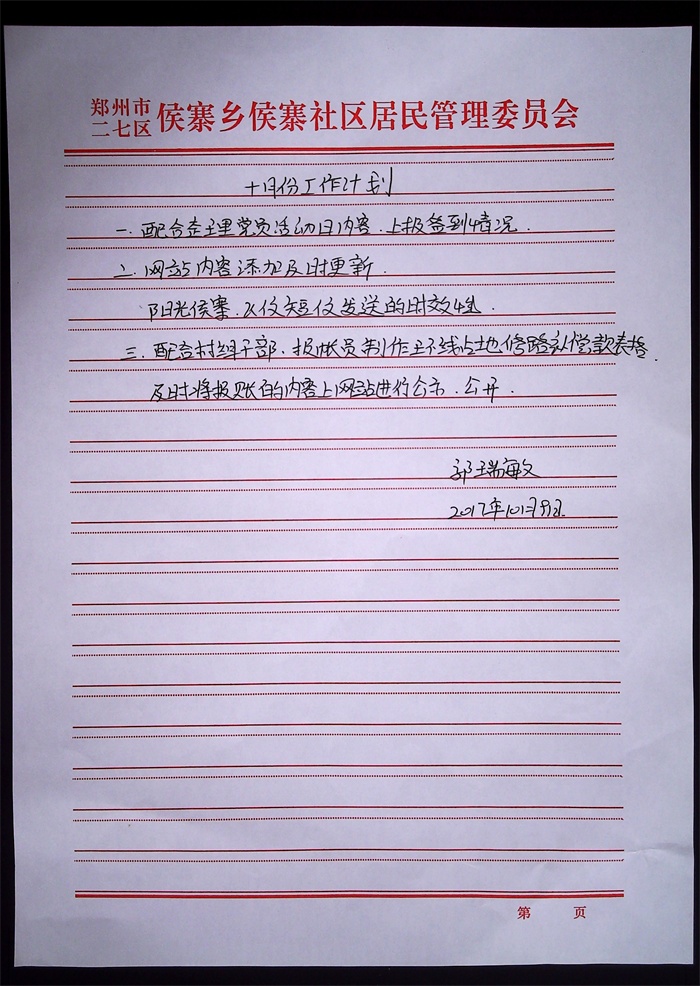 郑州市
二七区 侯寨乡侯寨社区居民管理委员会
十月份工作计划
一.配合整理党员活动日内容.上报签到情况.
二.网站内容添加及时更新.
阳光侯寨.飞信短信发送的时效性
三.配合村组干部、报账员制作王环线占地修路补偿款表格.
及时将报账的内容上网站进行公示.公开.
郭瑞敏
2017年10月
第 页